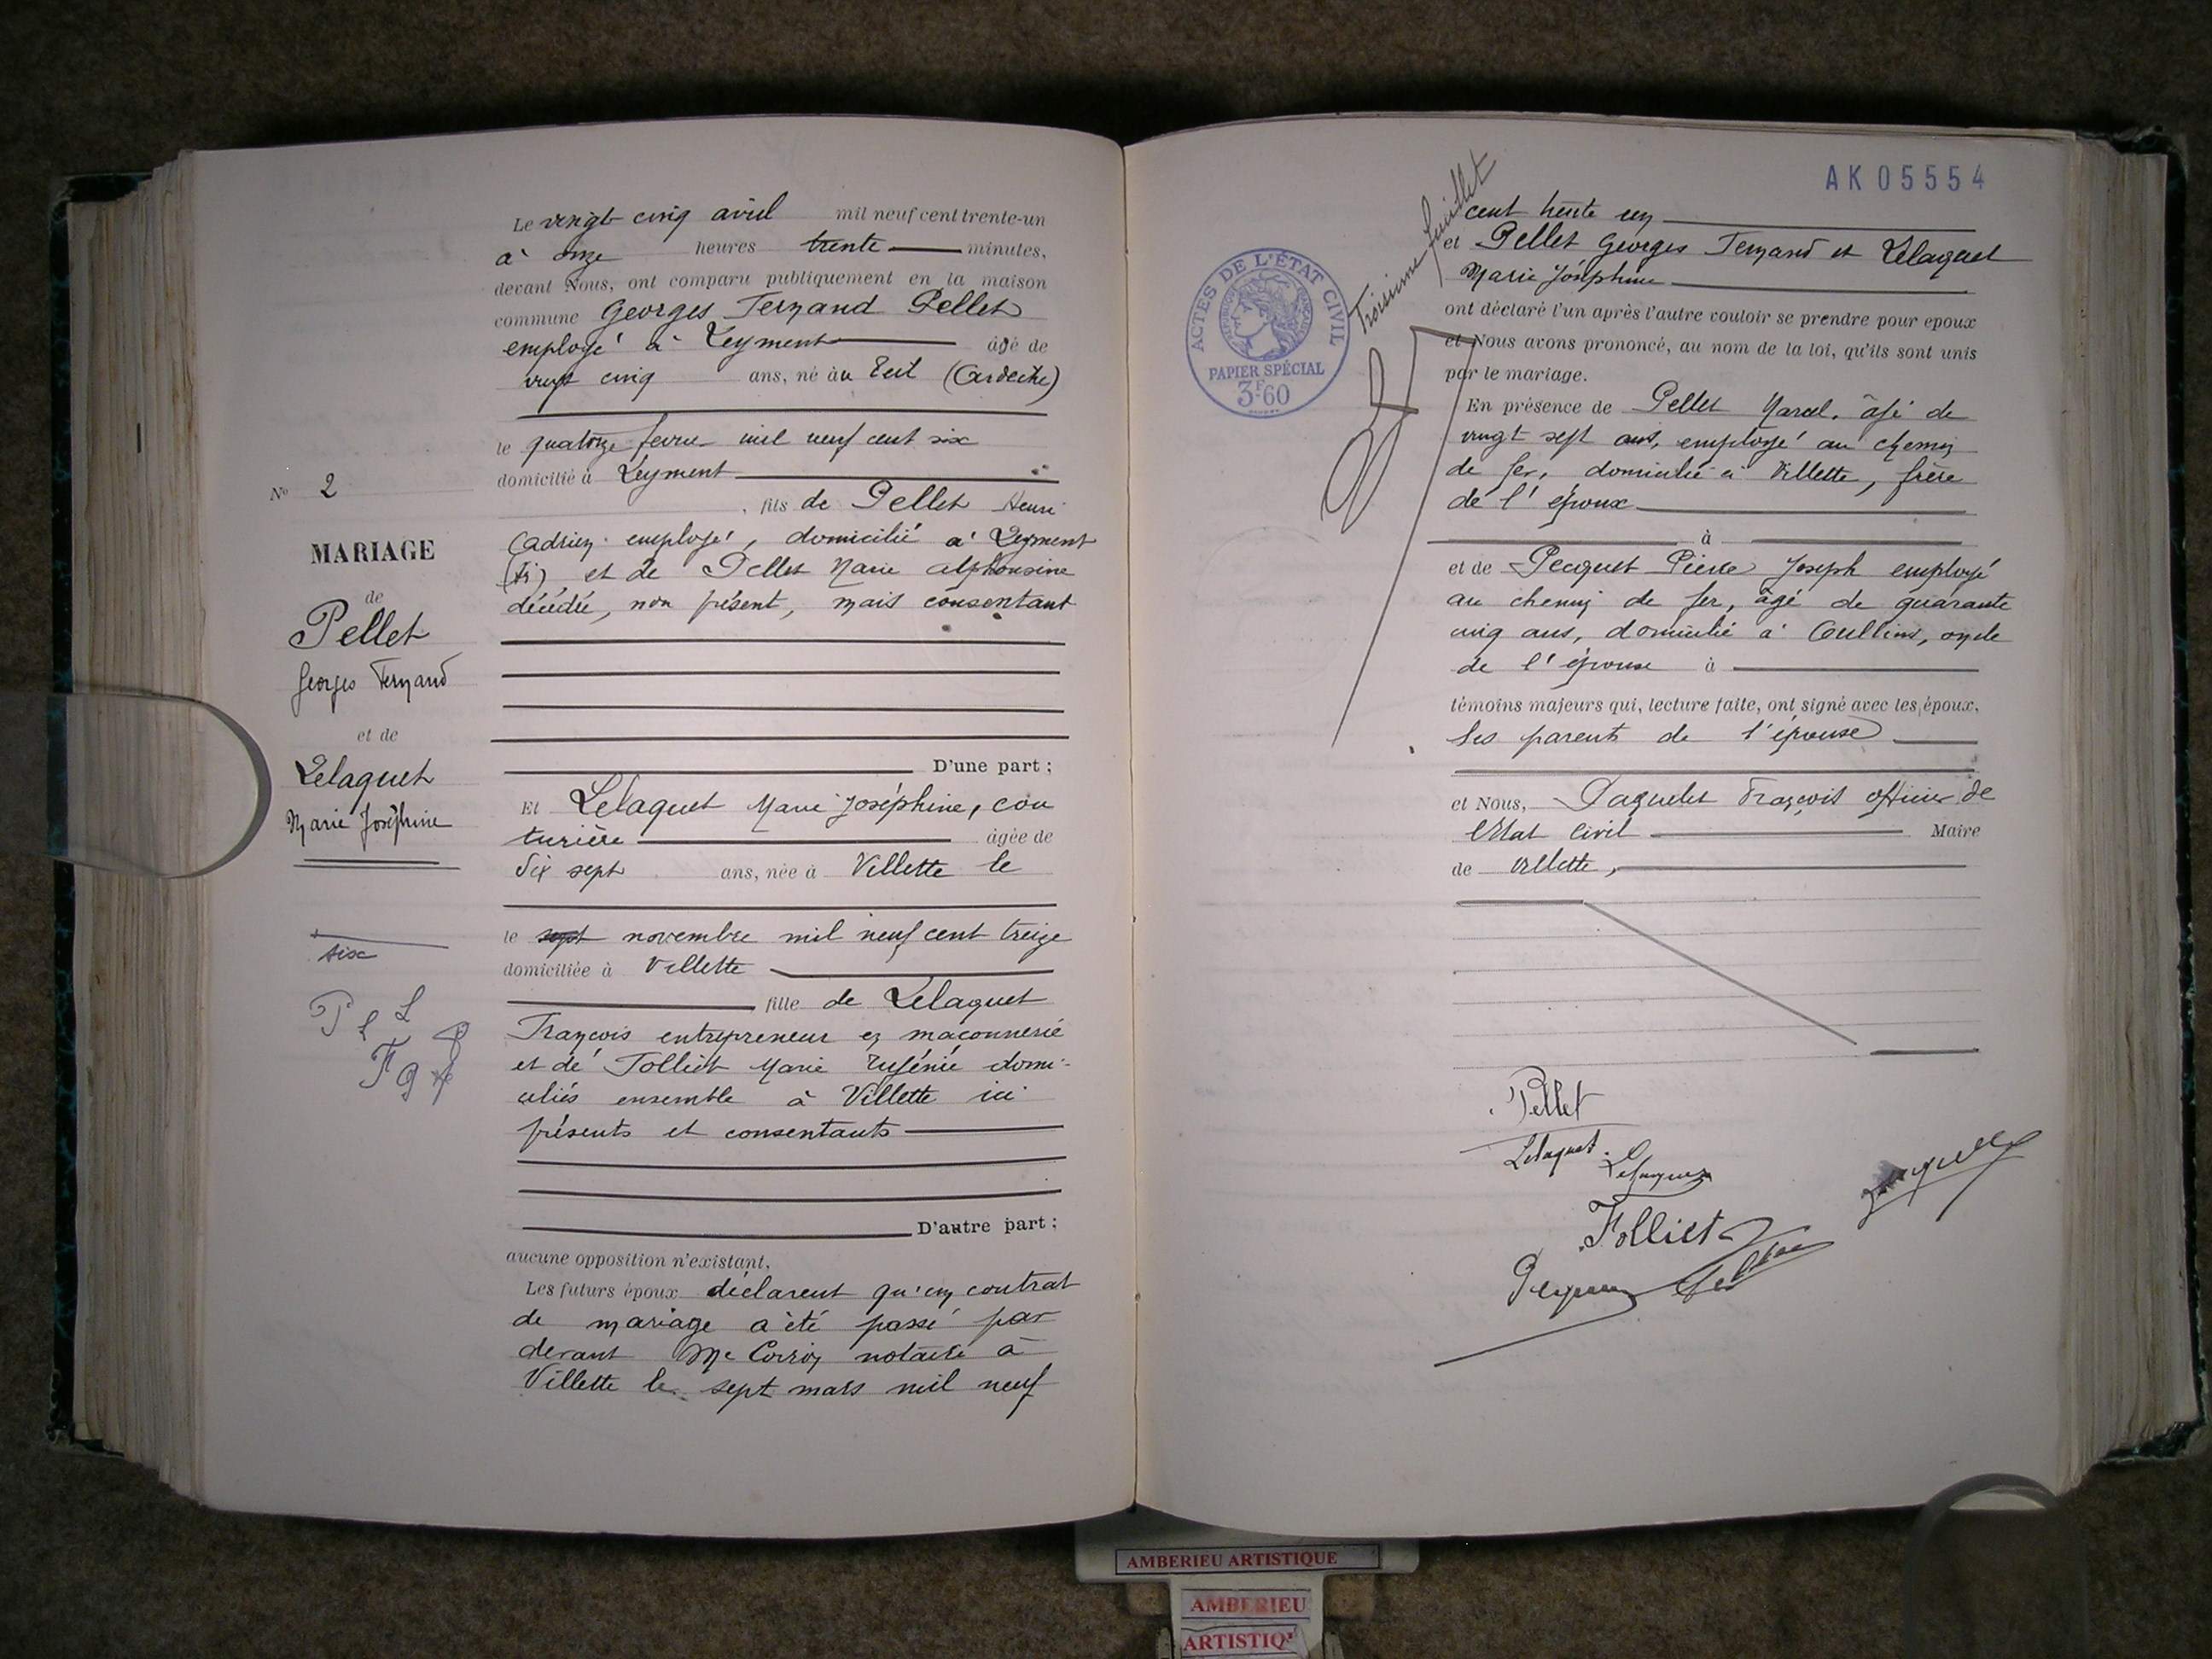 Le vingt cinq avril mil neuf cent trente-un
à onze heures trente minutes,
devant Nous, ont comparu publiquement en la maison
commune Georges Fernand Pellet
employé à Leyment âgé de
vingt cinq ans, né au Teil (Ardèche)
le quatorze fevrier mil neuf cent six
domicilié à Leyment
, fils de Pellet Henri
Cadrien employé, domicilié à Leyment
et de Pellet Marie alphonsine
décédée, non présent, mais consentant
D'une part ;
Et Lelaquet Marie Joséphine, cou
turière âgée de
dix sept ans, née à Villette le
le sept novembre mil neuf cent treize
domiciliée à Villette
fille de Lelaquet
François entrepreneur en maçonnerie
et de Folliet Marie Eugénie domi-
ciliés ensemble à Villette ici
présents et consentants
D'autre part ;
aucune opposition n'existant,
Les futurs époux déclarent qu'un contrat
de mariage a été passé par
devant Me notaire à
Villette le sept mars mil neuf
No 2
MARIAGE
de
Pellet
Georges Fernand
et de
Lelaquet
Marie Joséphine
six
P L L
F g
AK05554
Troisième feuillet
ACTES DE L'ÉTAT CIVIL
PAPIER SPÉCIAL
3F60
cent trente un
et Pellet Georges Fernand et Lelaquet
Marie Joséphine
ont déclaré l'un après l'autre vouloir se prendre pour époux
et Nous avons prononcé, au nom de la loi, qu'ils sont unis
par le mariage.
En présence de Pellet Marcel, âgé de
vingt sept ans, employé au chemin
de fer, domicilié à Villette, frère
de l'époux
à
et de Pecquet Pierre Joseph employé
au chemin de fer, âgé de quarante
cinq ans, domicilié à Oullins, oncle
de l'épouse à
témoins majeurs qui, lecture faite, ont signé avec les époux,
les parents de l'épouse
et Nous, Paquelet François officier de
l'Etat Civil Maire
de Villette,
Pellet
Lelaquet
Lelaquet
Folliet